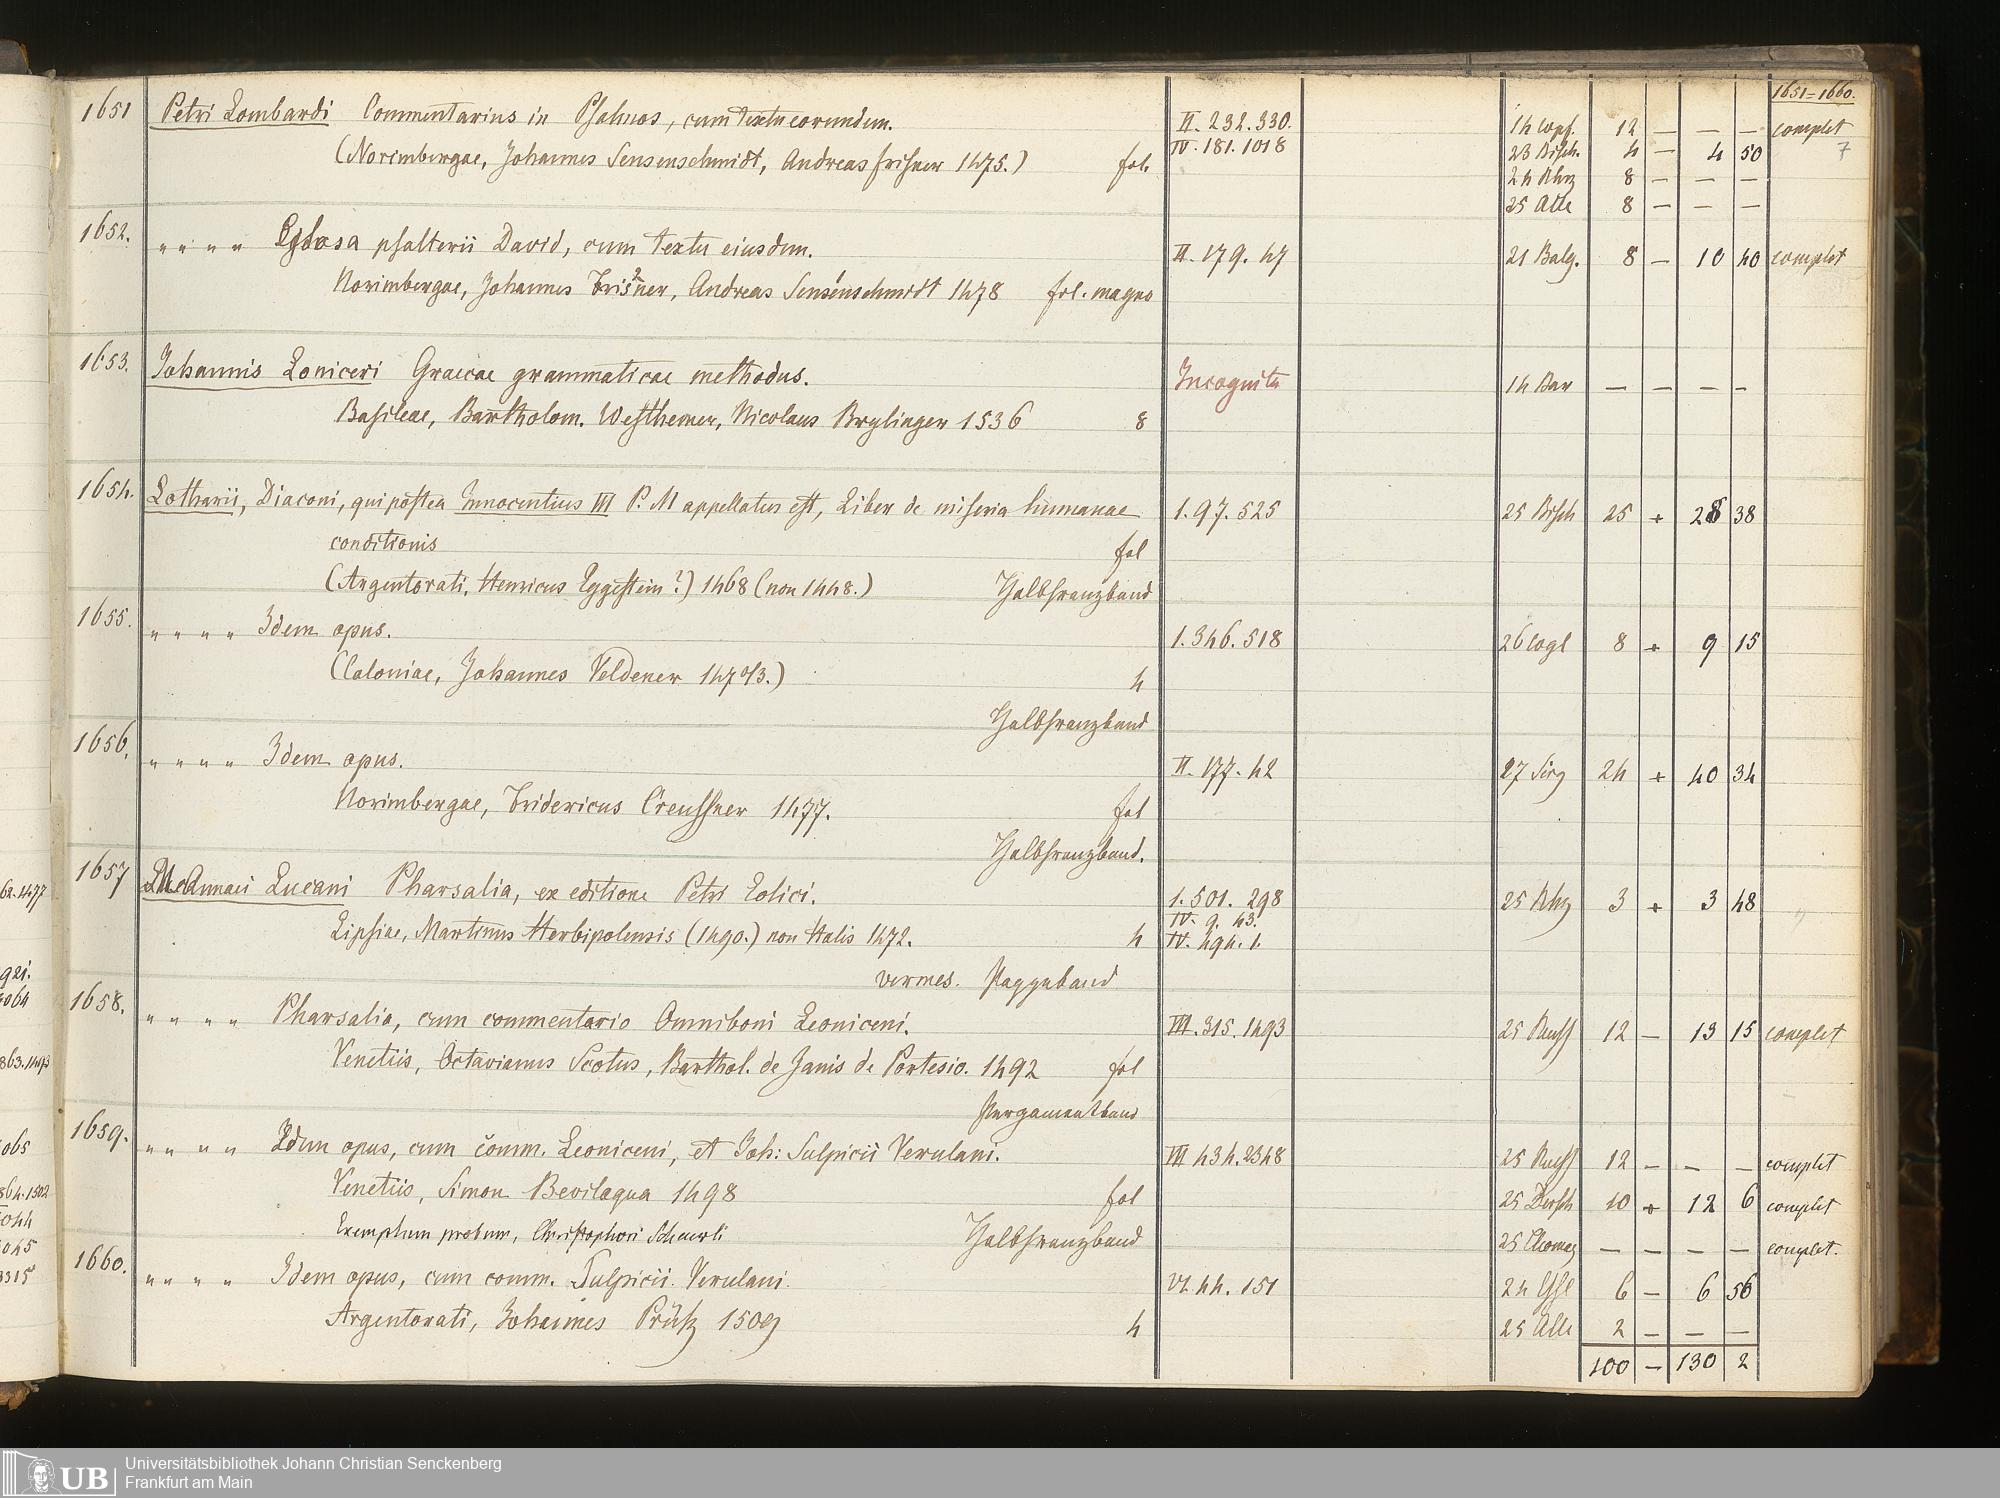 1651=1660.
1651 Petri Lombardi Commentarius in Psalmos, cum textu eorundem. II. 232. 330. 14 Copf. 12 — — — complet
(Norimbergae, Johannes Sensenschmidt, Andreas Frisner 1475.) fol. IV. 181. 1018 23 Bisch. 4 — 4 50 7
24 Rhz 8 — — —
25 Alle 8 — — —
1652. " " " " Glosa psalterii David, cum textu eiusdem. II. 179. 47 21 Balg. 8 — 10 40 complet
Norimbergae, Johannes Frisner, Andreas Sensenschmidt 1478 fol. magno
1653. Johannis Loniceri Graecae grammaticae methodus. Incognita 14 Bar — — — —
Basileae, Bartholom. Westhemer, Nicolaus Brylinger 1536 8
1654. Lotharii, Diaconi, qui postea Innocentius III P. M appellatus est, Liber de miseria humanae 1. 97. 525 25 Bisch 25 + 28 38
conditionis fol
(Argentorati, Henricus Eggestein?) 1468 (non 1448.) Halbfranzband
1655. " " " " Idem opus. 1. 346. 518 26 Cogl 8 + 9 15
(Coloniae, Johannes Veldener 1470/3.) 4
Halbfranzband
1656. " " " " Idem opus. II. 177. 42 27 24 + 40 34
Norimbergae, Fridericus Creussner 1477. fol
Halbfranzband.
1657 M. Annaei Lucani Pharsalia, ex editione Petri Eolici. 1. 501. 298 25 Rhz 3 + 3 48
IV. 9. 43.
Lipsiae, Martinus Herbipolensis (1490.) non Italis 1472. 4 IV. 494. 1.
vermes. Pappband
1658. " " " " Pharsalia, cum commentario Omniboni Leoniceni. III. 315. 1493 25 12 — 13 15 complet
Venetiis, Octavianus Scotus, Barthol. de Zanis de Portesio. 1492 fol
Pergamentband
1659. " " " " Idem opus, cum comm. Leoniceni, et Joh: Sulpicii Verulani. III 434. 2348 25 12 — — — complet
Venetiis, Simon Bevilaqua 1498 fol 25 10 + 12 6 complet
Exemplum probum, Christophori Scheurli Halbfranzband 25 — — — — complet.
1660. " " " " Idem opus, cum comm. Sulpicii Verulani. VI. 44. 151 24 6 — 6 56
Argentorati, Johannes Prüß 1509 4 25 Alle 2 — — —
100 — 130 2
UB Universitätsbibliothek Johann Christian Senckenberg
Frankfurt am Main